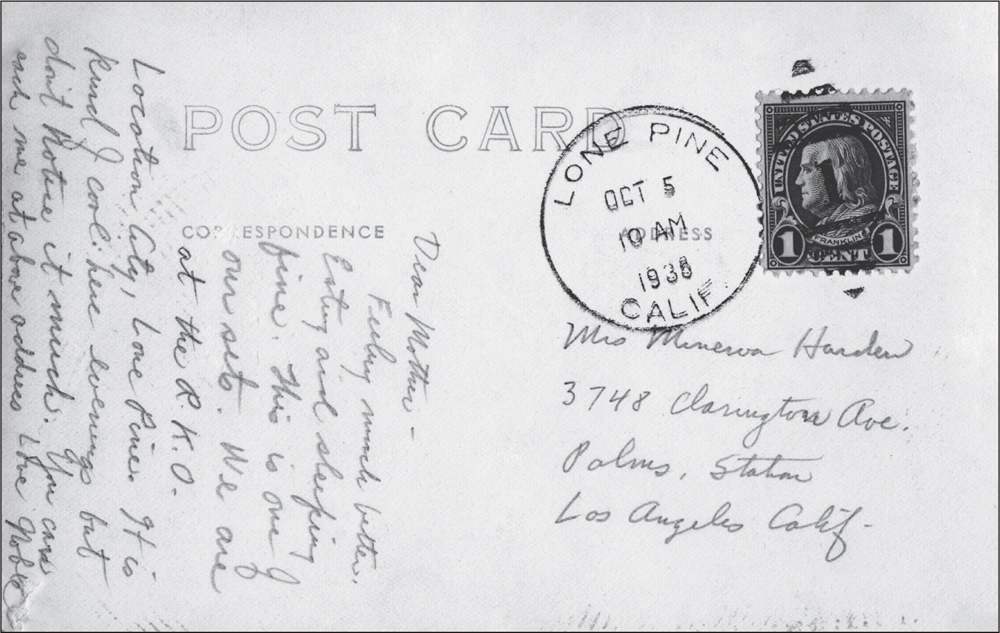 POST CARD
CORRESPONDENCE
ADDRESS
LONE PINE
OCT 5
10 AM
1938
CALIF.
UNITED STATES POSTAGE
1
FRANKLIN
1 CENT 1
Dear Mother -
Feeling much better.
Eating and sleeping
fine. This is one of
our sets. We are
at the R.K.O.
Location City, Lone Pine. It is
kind of cool here evenings but
don't notice it much. You can
each me at above address Love Noble
Mrs Minerva Harden
3748 Clarington Ave.
Palms, Station
Los Angeles Calif-